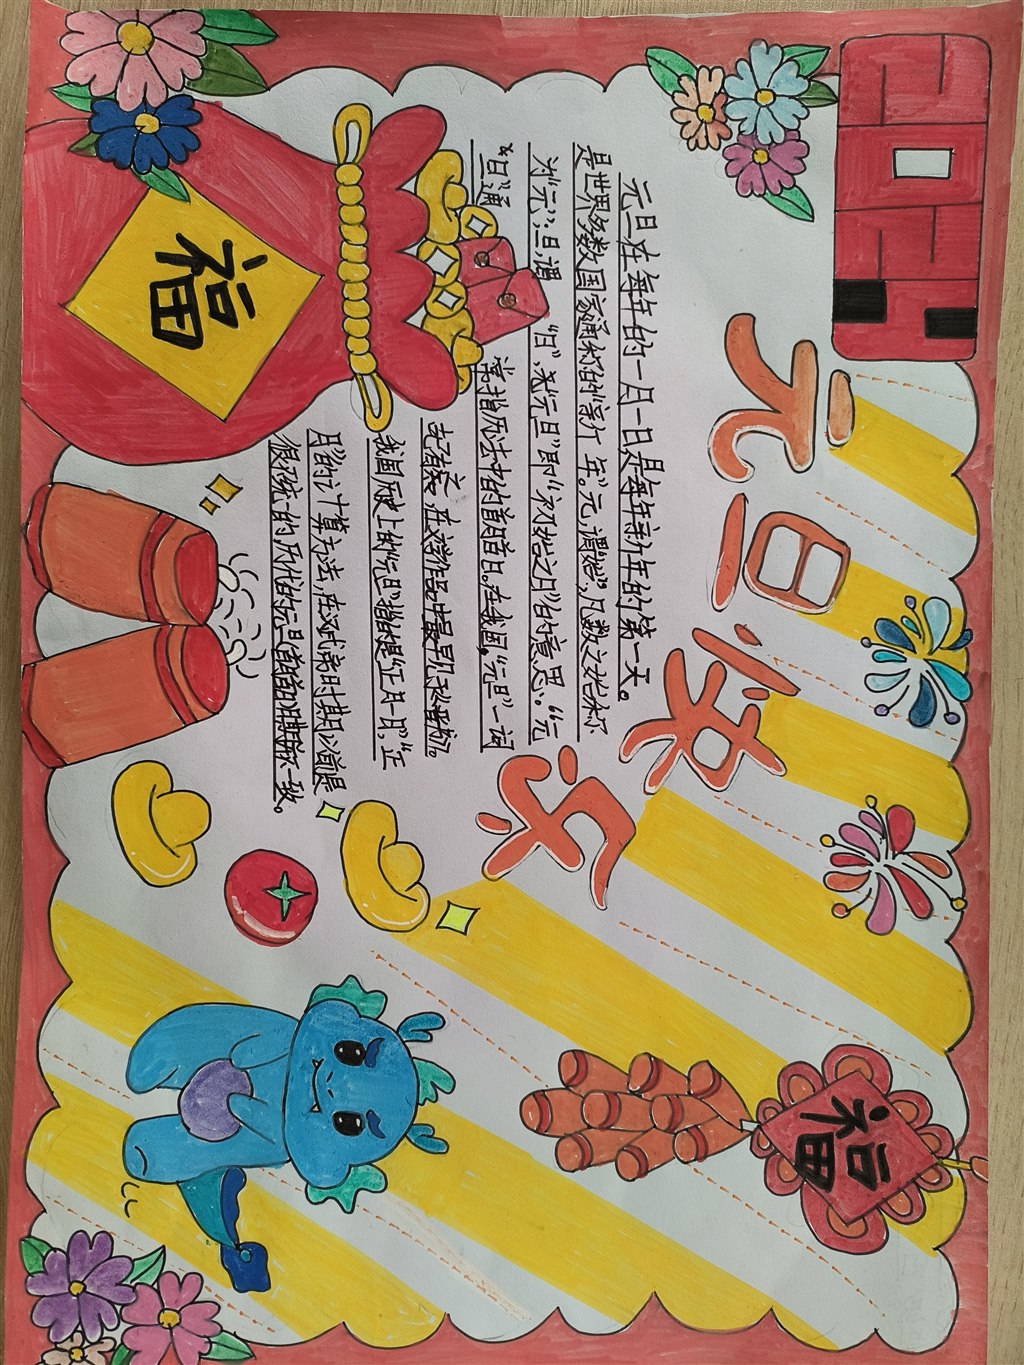 2024
元旦快乐
元旦在每年的一月一日是每年新年的第一天。
是世界多数国家通称的“新年”。元,谓“始”,凡数之始称
为“元”;旦,谓“日”,“元旦”即“初始之日”的意思。“元
“旦”通常指历法中的首月首日。在我国“元旦”一词
在文学作品中最早见于
我国历史上的“元旦”指的是“正月一日”,“正
月”的计算方法,在汉武帝时期以前是
很不统一的历代的元旦首月首日日期并不一致。
福
福